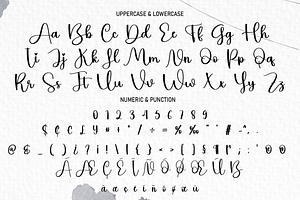 UPPERCASE & LOWERCASE
Aa Bb Cc Dd Ee Ff Gg Hh
Ii Jj Kk Ll Mm Nn Oo Pp Qq
Rr Ss Tt Uu Vv Ww Xx Yy Zz
NUMERIC & PUNCTION
0 1 2 3 4 5 6 7 8 9
$ ¢ £ ¥ + / ÷ = % ‰
@ & _ ( ) ¿ ? ! ¡ { }
á æ ç è í ñ ó ø ú